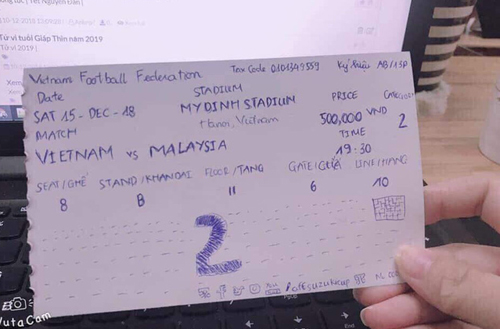 Từ vi tuổi Giáp Thìn năm 2019
Vietnam Football Federation
Tax Code 0101349559
Ký hiệu AB/15P
Date
STADIUM
PRICE
SAT 15-DEC-18
MY DINH STADIUM
500,000 VND
2
MATCH
Hanoi, Vietnam
TIME
VIETNAM vs MALAYSIA
19:30
SEAT/GHẾ
STAND/KHANDAI
FLOOR/TANG
GATE/CỬA
LINE/HANG
8
B
II
6
10
2